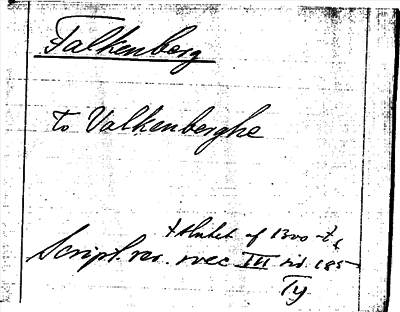 Falkenberg
to Valkenberghe
af 1300-t.
Script. rer. svec III sid. 185
Ty